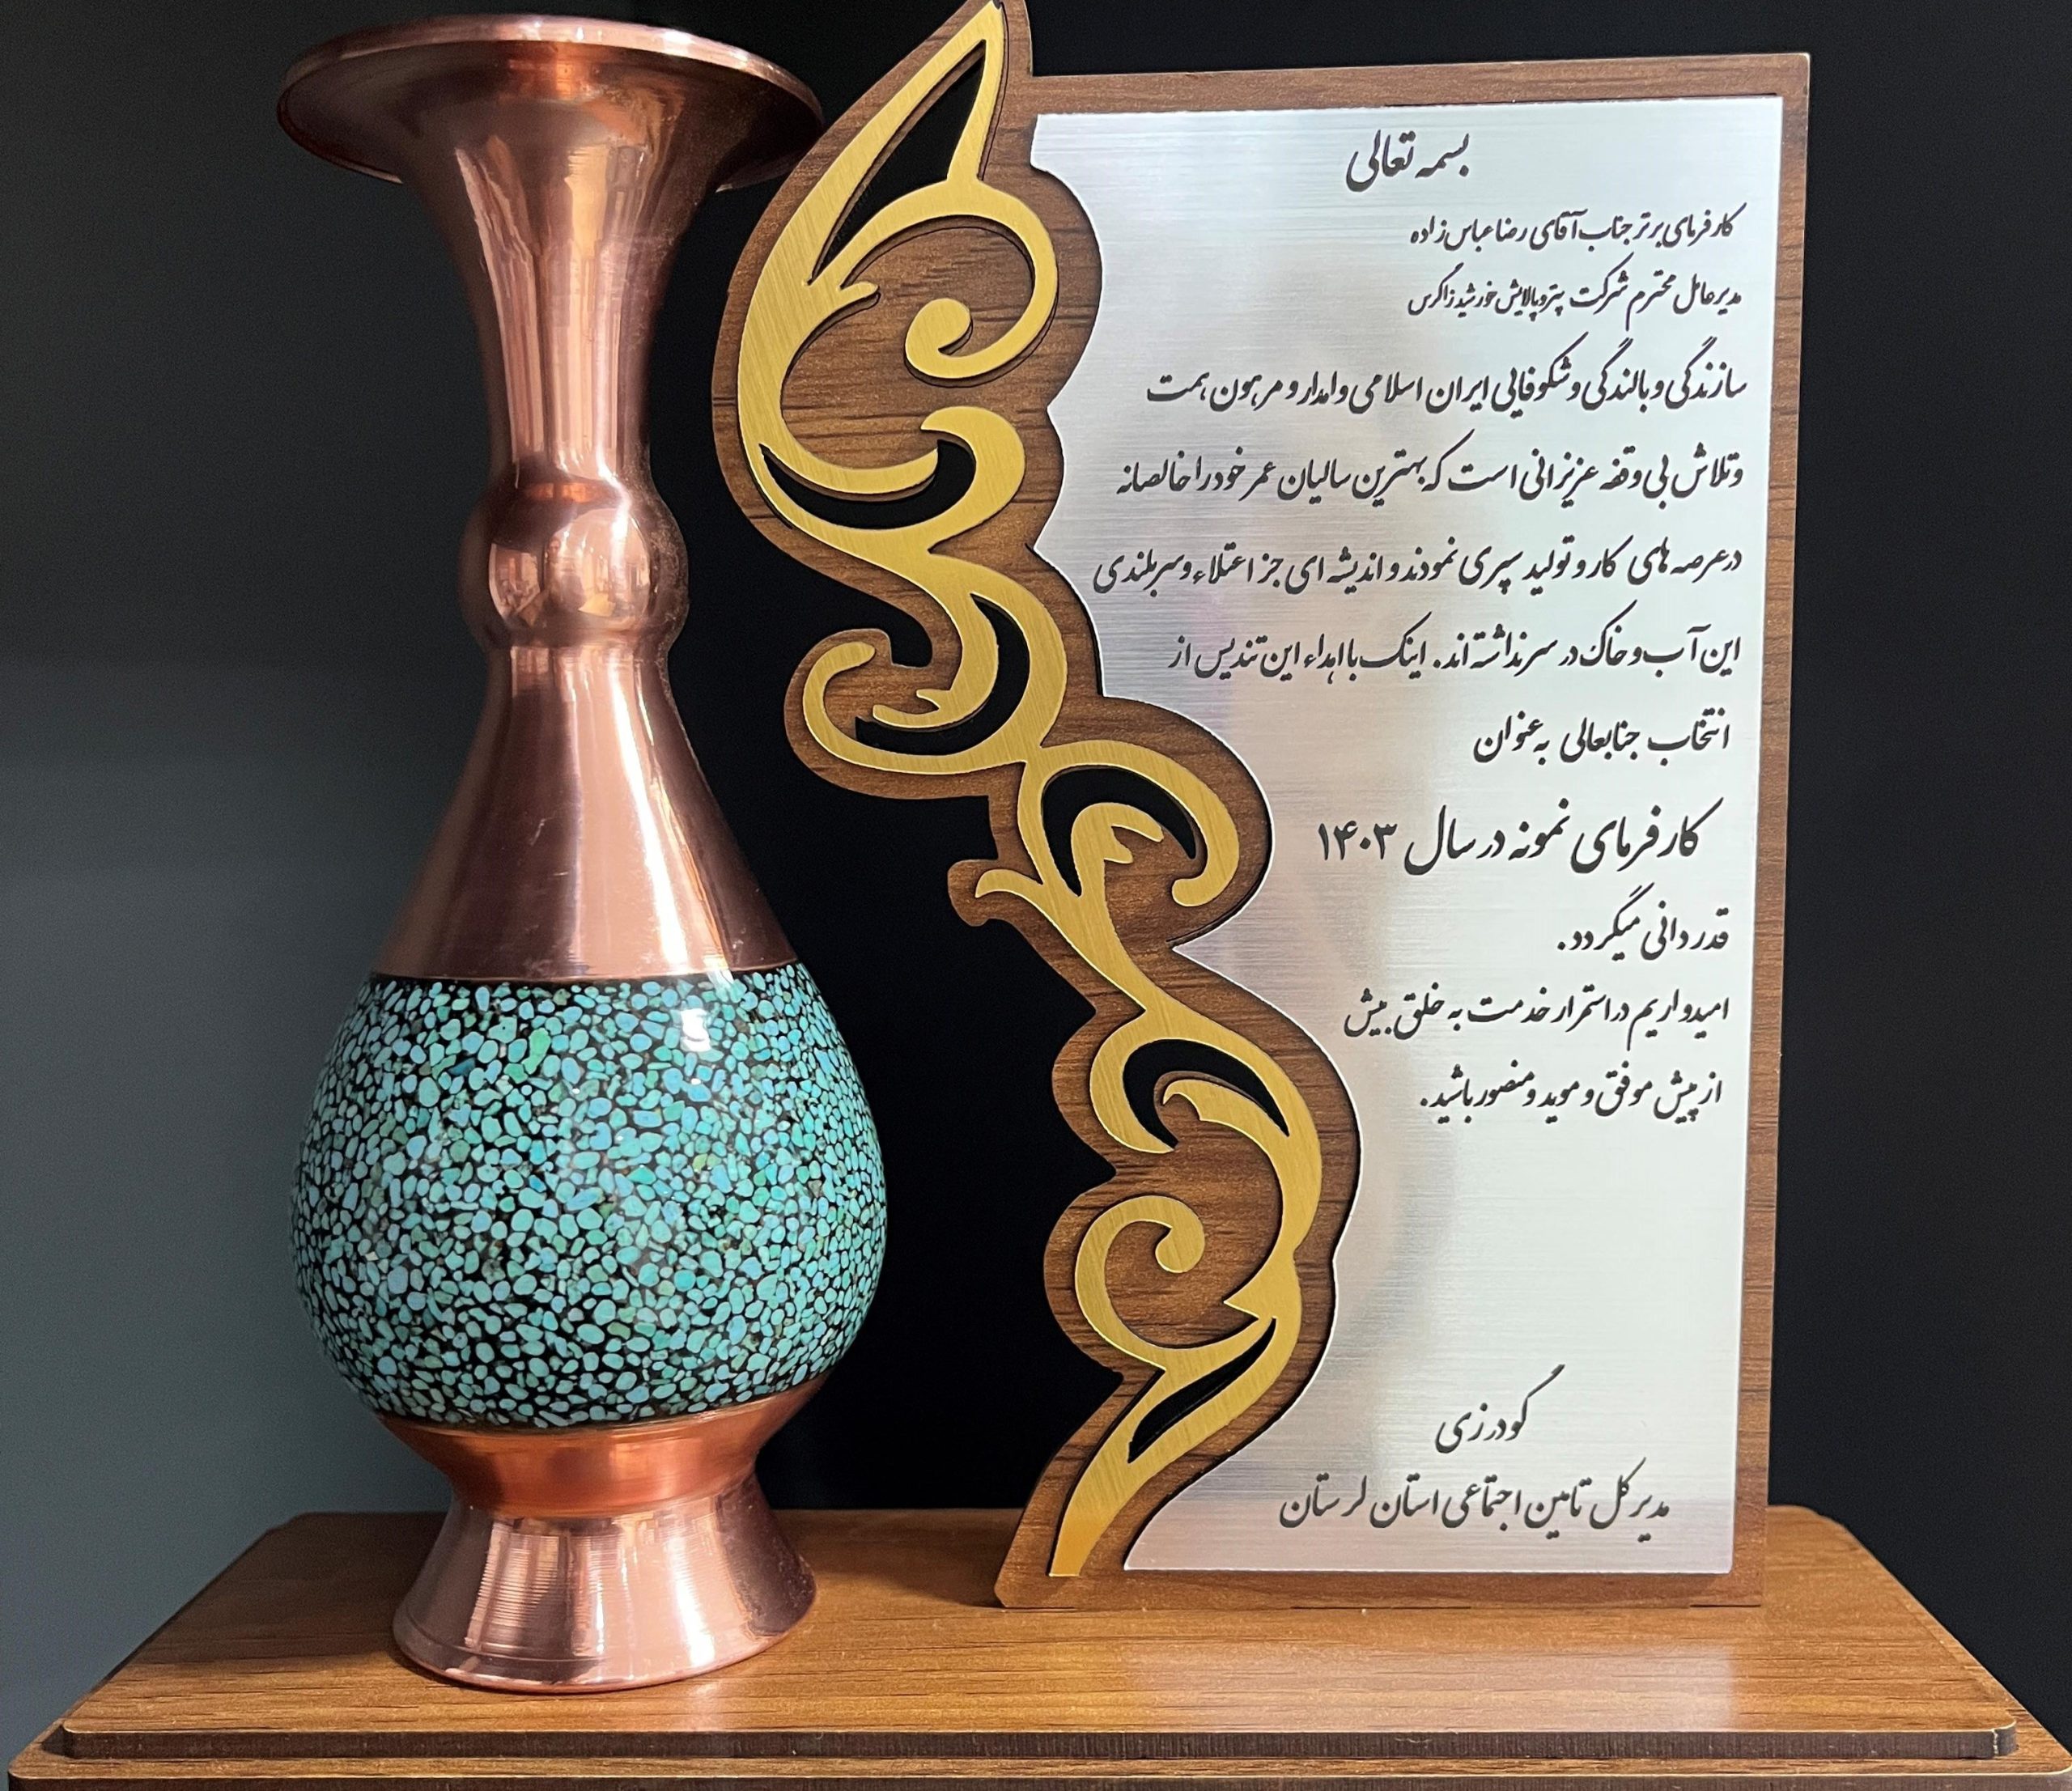 بسمه تعالی
کارفرمای برتر جناب آقای رضا عباس زاده
مدیرعامل محترم شرکت پتروپالایش خورشید زاگرس
سازندگی و بالندگی و شکوفایی ایران اسلامی وامدار و مرهون همت
و تلاش بی وقفه عزیزانی است که بهترین سالیان عمر خود را خالصانه
در عرصه های کار و تولید سپری نمودند و اندیشه ای جز اعتلاء و سربلندی
این آب و خاک در سر نداشته اند. اینک با اهداء این تندیس از
انتخاب جنابعالی به عنوان
کارفرمای نمونه در سال ۱۴۰۳
قدردانی میگردد.
امیدواریم در استمرار خدمت به خلق بیش
از پیش موفق و موید و منصور باشید.
گودرزی
مدیرکل تامین اجتماعی استان لرستان